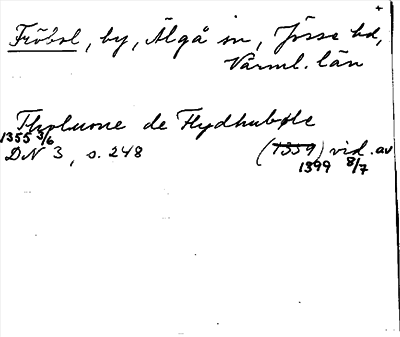 +
Fröbol, by, Älgå sn, Jösse hd,
Värml. län
Thorluone de Flydhubøle
1355 3/6
DN 3, s. 248 (1359) vid. av
1399 8/7